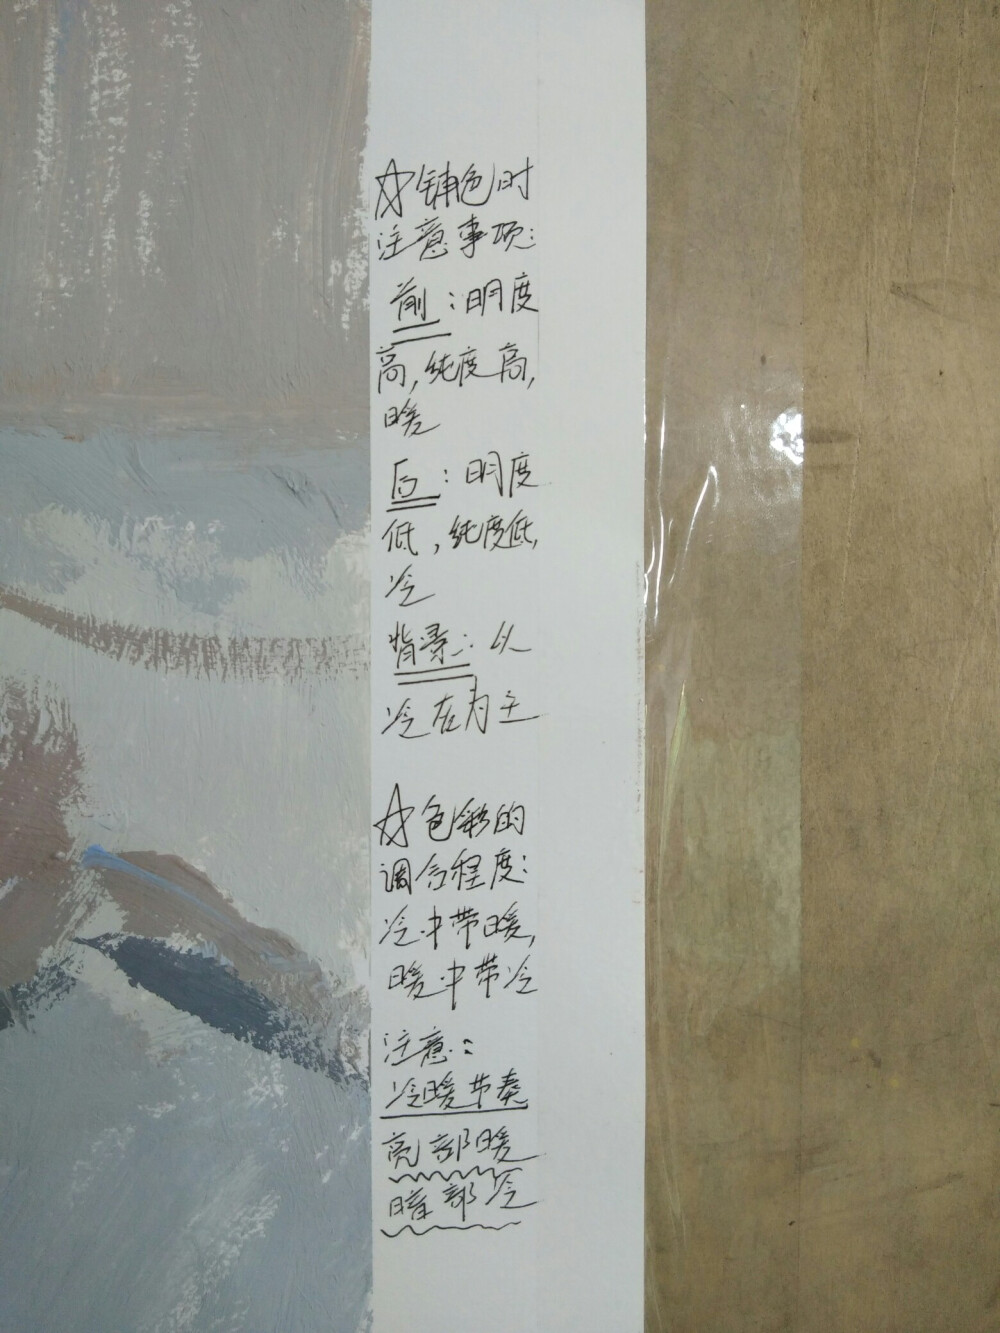 ☆铺色时
注意事项:
前:明度
高,纯度高,
暖
后:明度
低,纯度低,
冷
背景:以
冷在为主
☆色彩的
调合程度:
冷中带暖,
暖中带冷
注意:
冷暖节奏
亮部暖
暗部冷